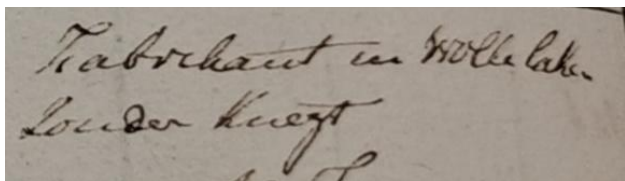 Fabrikant in Wolle laken
Zonder Knegt